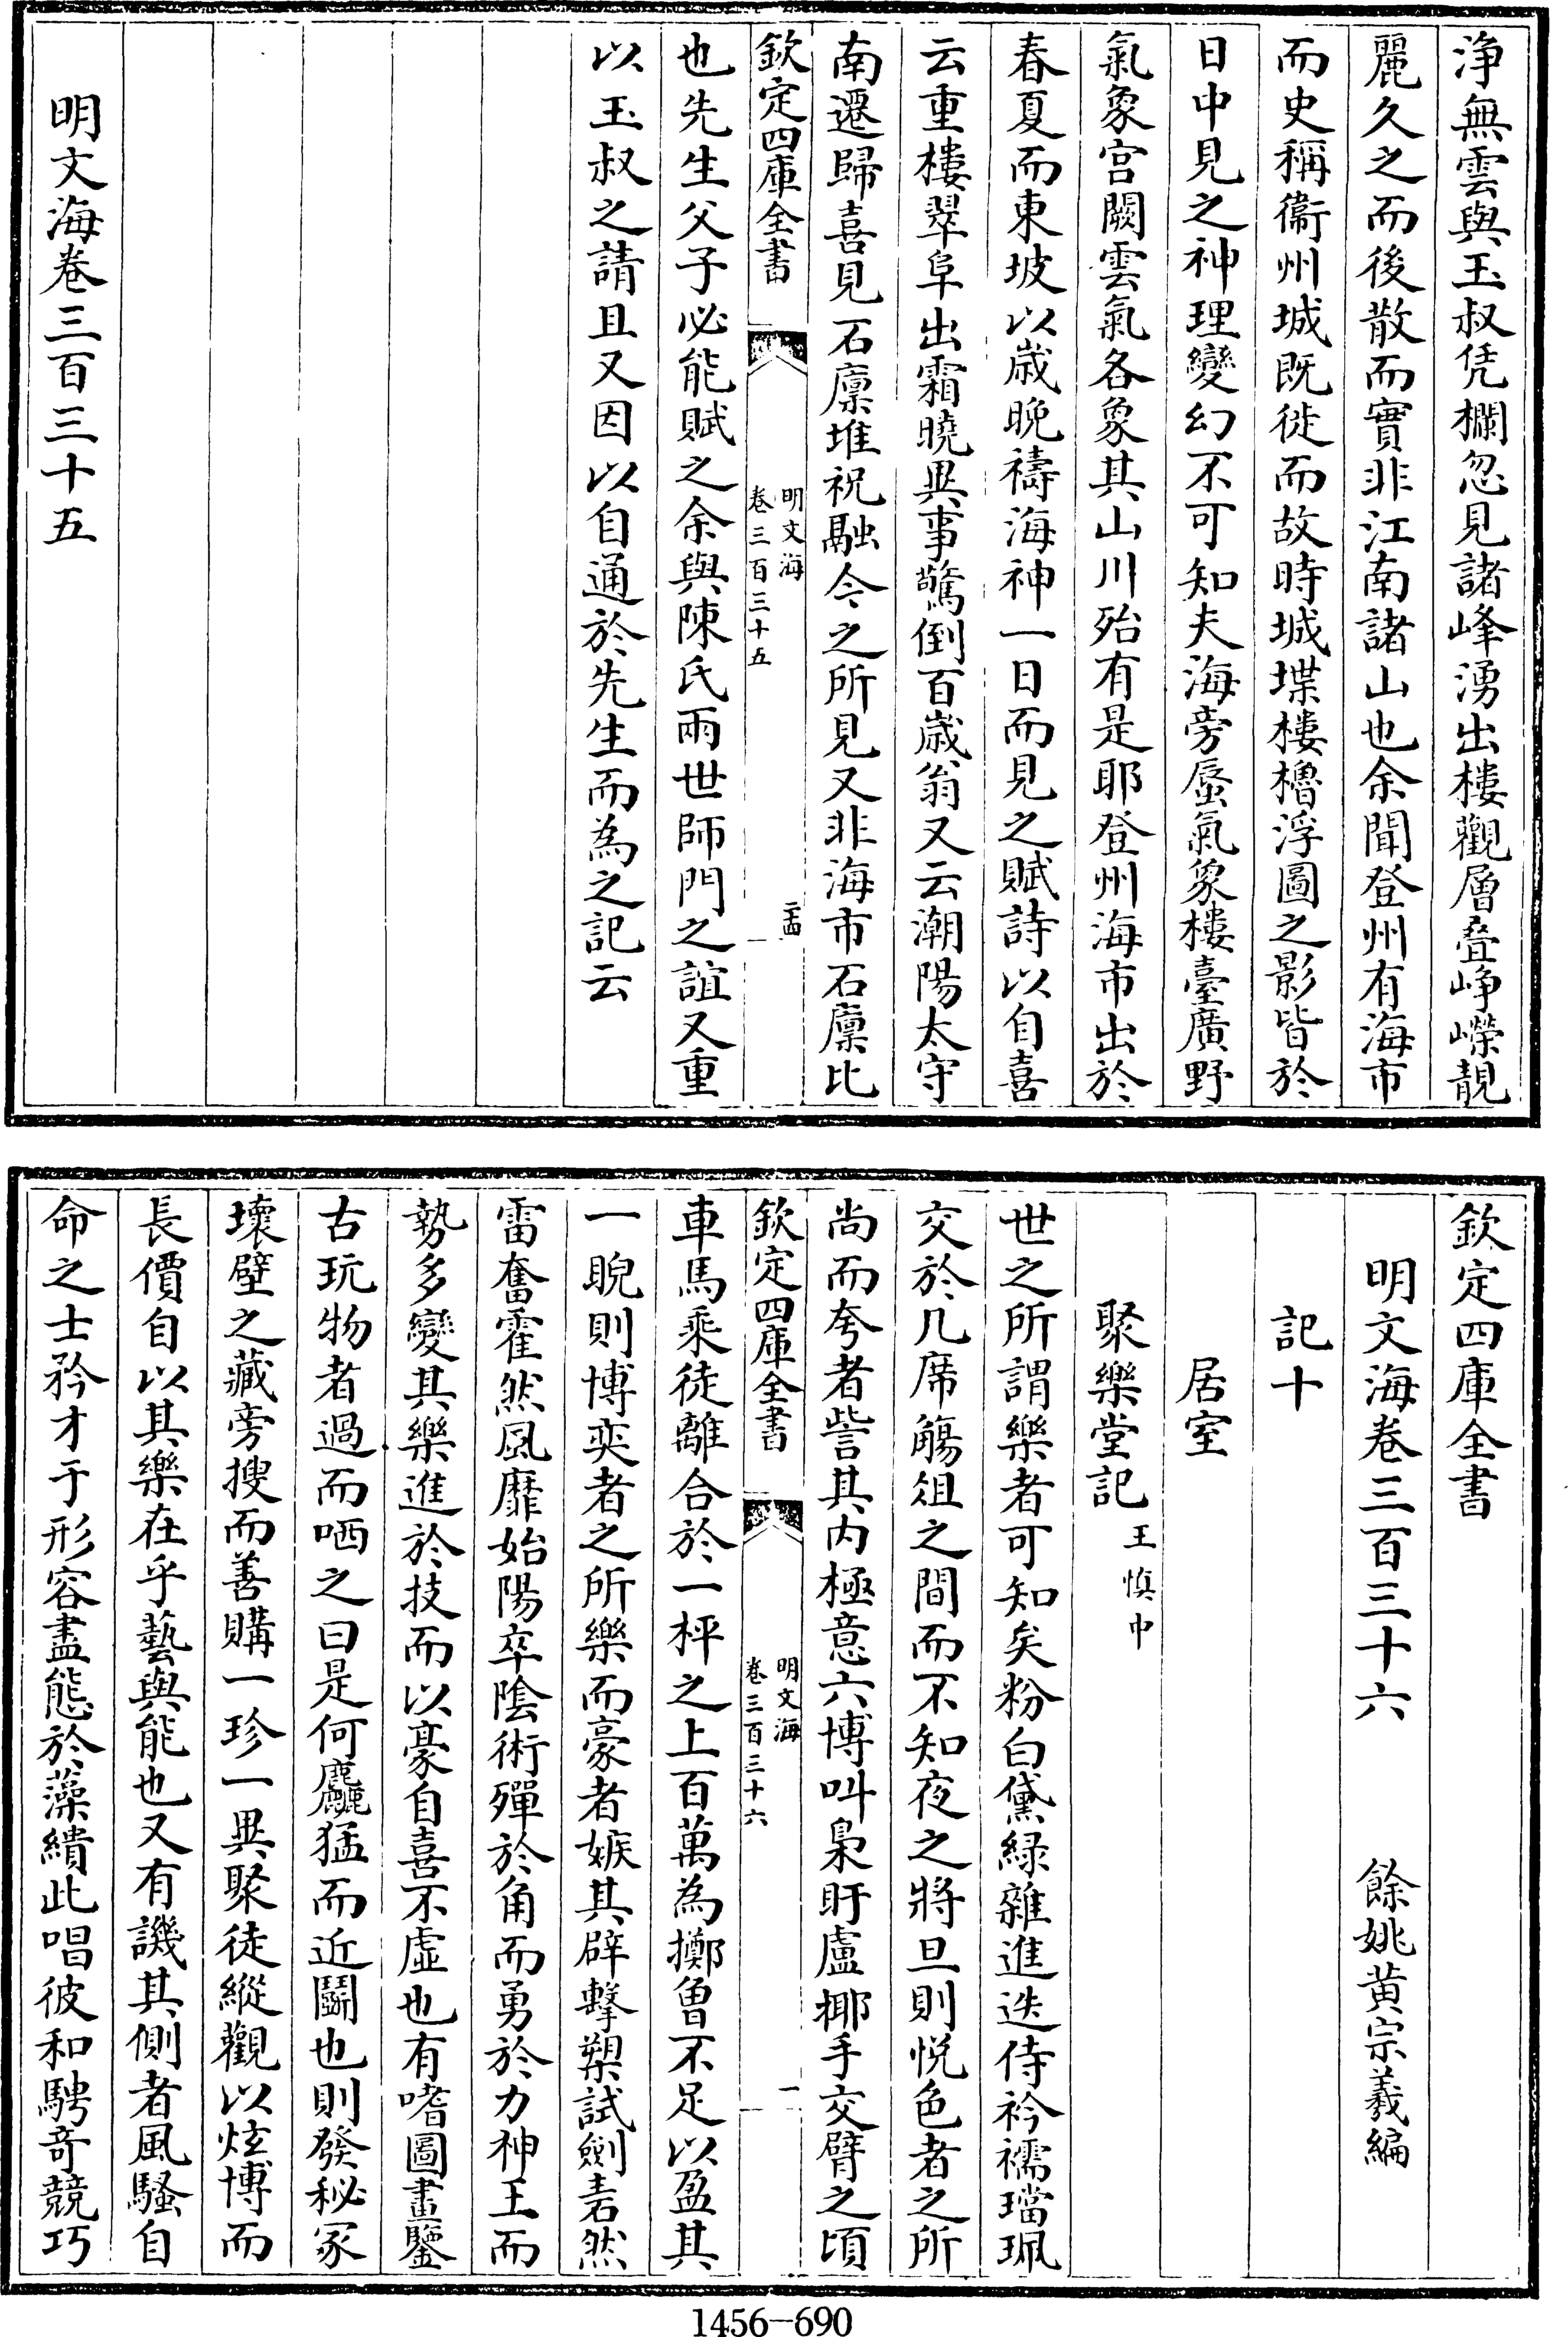 淨無雲與玉叔凭欄忽見諸峰湧出樓觀層疊崢嶸靚
麗久之而後散而實非江南諸山也余聞登州有海市
而史稱衞州城既徙而故時城堞樓櫓浮圖之影皆於
日中見之神理變幻不可知夫海旁蜃氣象樓臺廣野
氣象宮闕雲氣各象其山川殆有是耶登州海市出於
春夏而東坡以歲晚禱海神一日而見之賦詩以自喜
云重樓翠阜出霜曉異事驚倒百歲翁又云潮陽太守
南遷歸喜見石廩堆祝融今之所見又非海市石廩比
欽定四庫全書
明文海
卷三百三十五
二十四
也先生父子必能賦之余與陳氏兩世師門之誼又重
以玉叔之請且又因以自通於先生而為之記云
明文海卷三百三十五
欽定四庫全書
明文海卷三百三十六 餘姚黄宗羲編
記十
居室
聚樂堂記 王慎中
世之所謂樂者可知矣粉白黛緑雜進迭侍衿襦璫珮
交於几席觴俎之間而不知夜之將旦則悦色者之所
尚而夸者訾其内極意六博叫梟盱盧揶手交臂之頃
欽定四庫全書
明文海
卷三百三十六
一
車馬乘徒離合於一枰之上百萬為擲曾不足以盈其
一睨則博奕者之所樂而豪者嫉其辟擊槊試劍砉然
雷奮霍然風靡始陽卒陰術殫於角而勇於力神王而
勢多變其樂進於技而以豪自喜不虛也有嗜圖畫鑒
古玩物者過而哂之曰是何麤猛而近鬬也則發秘冢
壞壁之藏旁搜而善購一珍一異聚徒縱觀以炫博而
長價自以其樂在乎藝與能也又有譏其側者風騷自
命之士矜才于形容盡態於藻繢此唱彼和騁奇競巧
1456-690